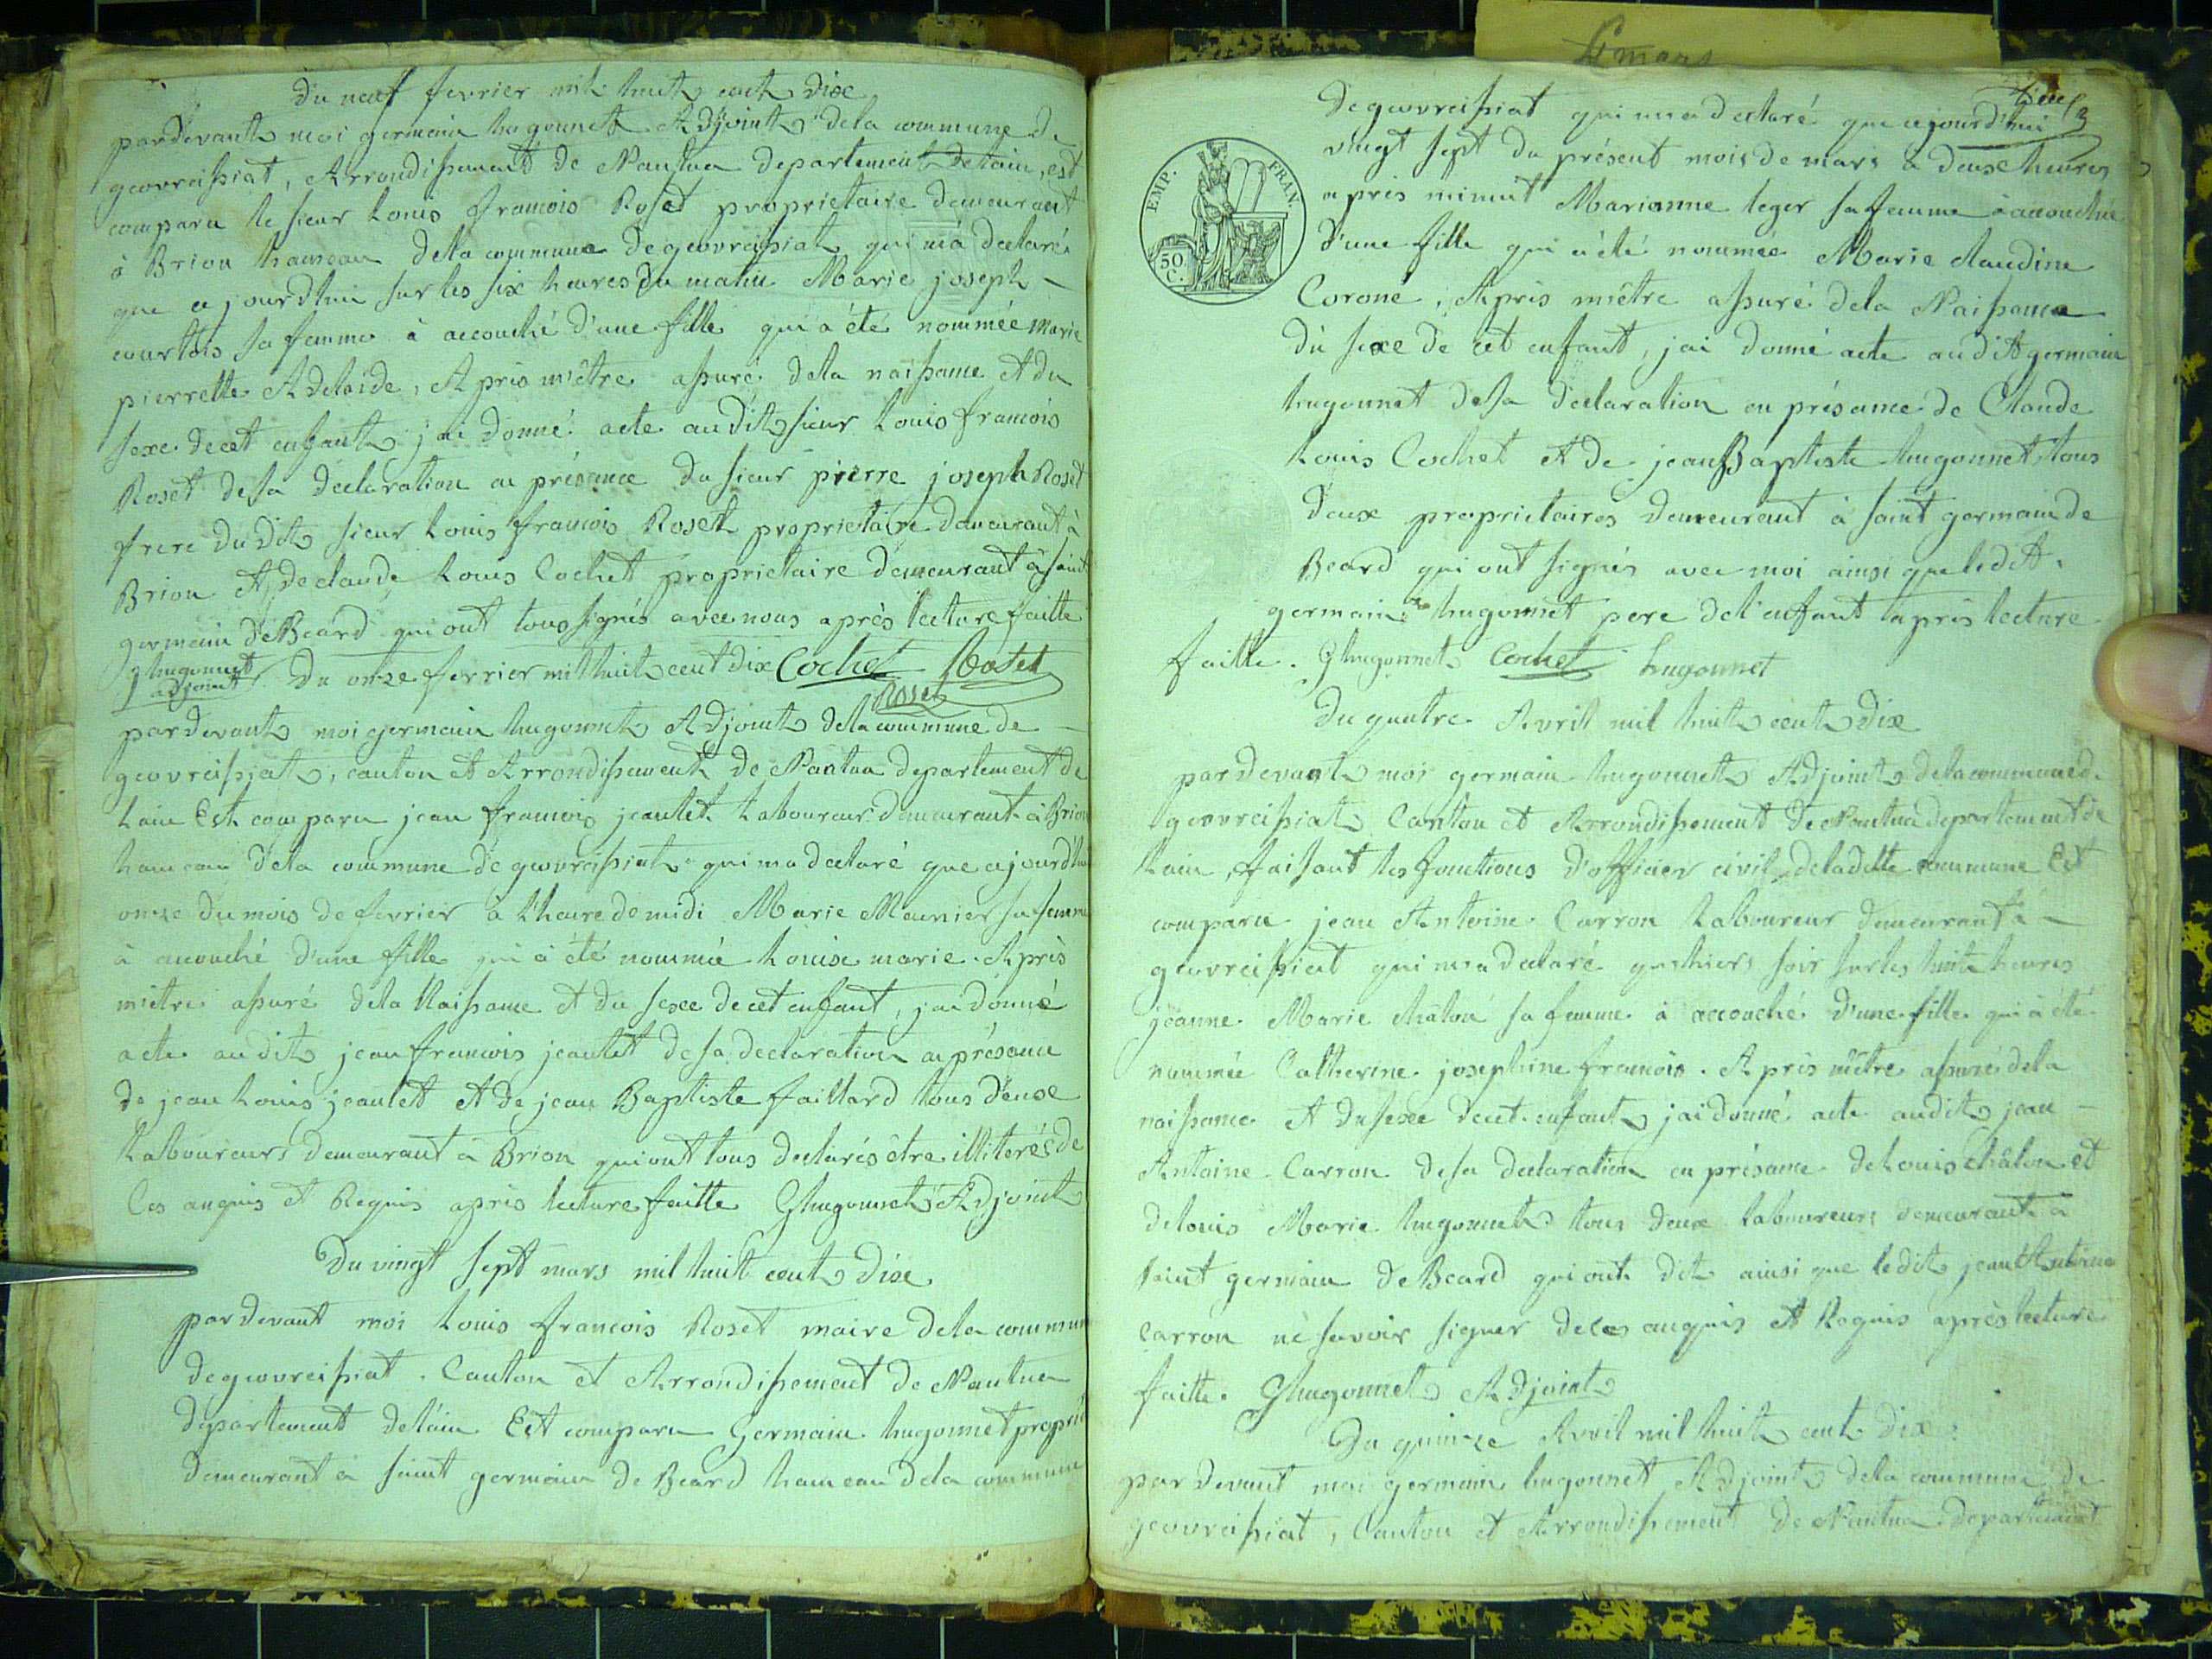 Du neuf fevrier mil huit cent dixe
pardevant moi germain hugonnet Adjoint dela commune de
geovreissiat, Arrondissement de Nantua departement delain, est
comparu le sieur Louis francois Roset proprietaire demeurant
à Brion hameau dela commune degeovreissiat qui m'a declaré
que cejourdhui sur les six heures du matin Marie joseph –
courtois sa femme à accouché d'une fille qui a été nommée Marie
pierrette Adelaide, Après m'être assuré dela naissance et du
sexe decet enfant jai donné acte audit sieur Louis francois
Roset desa déclaration en présence du sieur pierre joseph Roset
frere dudit sieur Louis francois Roset proprietaire demeurant à
Brion et de claude Louis Cochet proprietaire demeurant à saint
germain deBeard qui ont tous signés avec nous après lecture faitte
ghugonnet adjoint
Du onze fevrier mil huit cent dix Cochet Roset
Roset
pardevant moi germain hugonnet Adjoint dela commune de –
geovreissiat, canton et Arrondissement de Nantua departement de
Lain Est comparu jean francois jeantet Laboureur demeurant à Brion
hameau dela commune de geovreissiat qui ma declaré que cejourdhui
onze du mois de fevrier à l'heure de midi Marie Meunier sa femme
à accouché d'une fille qui à été nommée Louise marie. Après
m'être assuré dela Naissance et du sexe decet enfant, jai donné
acte audit jean francois jeantet desa declaration en présence
de jean Louis jeantet et de jean Baptiste faillard tous deuxe
Laboureurs demeurant à Brion qui ont tous declarés être illiterés de
Ces anquis et Requis après lecture faitte Ghugonnet Adjoint
Du vingt sept mars mil huit cent dixe
pardevant moi Louis francois Roset maire dela commune
degeovreissiat. Canton et Arrondissement de Nantua
departement delain Est comparu Germain hugonnet proprié
demeurant à saint germain de Beard hameau dela commune
4 mars
EMP. FRAN.
50.
C.
degeovreissiat qui ma declaré que cejourd'hui
vingt sept du présent mois de mars à deuxe heures
après minuit Marianne leger sa femme à accouchée
d'une fille qui a été nommée Marie claudine
Coroné, Après m'être assuré dela Naissance
du sexe de cet enfant, jai donné acte audit germain
hugonnet desa declaration en présence de Claude
Louis Cochet et de jeanBaptiste hugonnet tous
deuxe proprietaires demeurant à saint germain de
Beard qui ont signés avec moi ainsi que ledit.
germain hugonnet pere del'enfant après lecture
faitte. Ghugonnet Cochet hugonnet
Du quatre Avril mil huit cent dixe
pardevant moi germain hugonnet Adjoint dela commune d.
geovreissiat Canton et Arrondissement de Nantua departement de
Lain, faisant les fonctions d'officier civil deladitte commune Est
comparu jean Antoine Carron Laboureur demeurant à –
geovreissiat qui ma declaré que hiers soir sur les huit heures
jeanne Marie châlon sa femme à accouché d'une fille qui à été
nommée Catherine josephine francois. Après m'être assuré dela
naissance et du sexe decet enfant jai donné acte audit jean –
Antoine Carron desa declaration en présence deLouis châlon et
delouis Marie hugonnet tous deux Laboureurs demeurant à
saint germain deBeard qui ont dit ainsi que ledit jean Antoine
Carron ne savoir signer dece anquis et Requis après lecture
faitte. Ghugonnet Adjoint
Du quinze Avril mil huit cent dix
pardevant moi germain hugonnet Adjoint dela commune de
geovreissiat, Canton et Arrondissement de Nantua departement